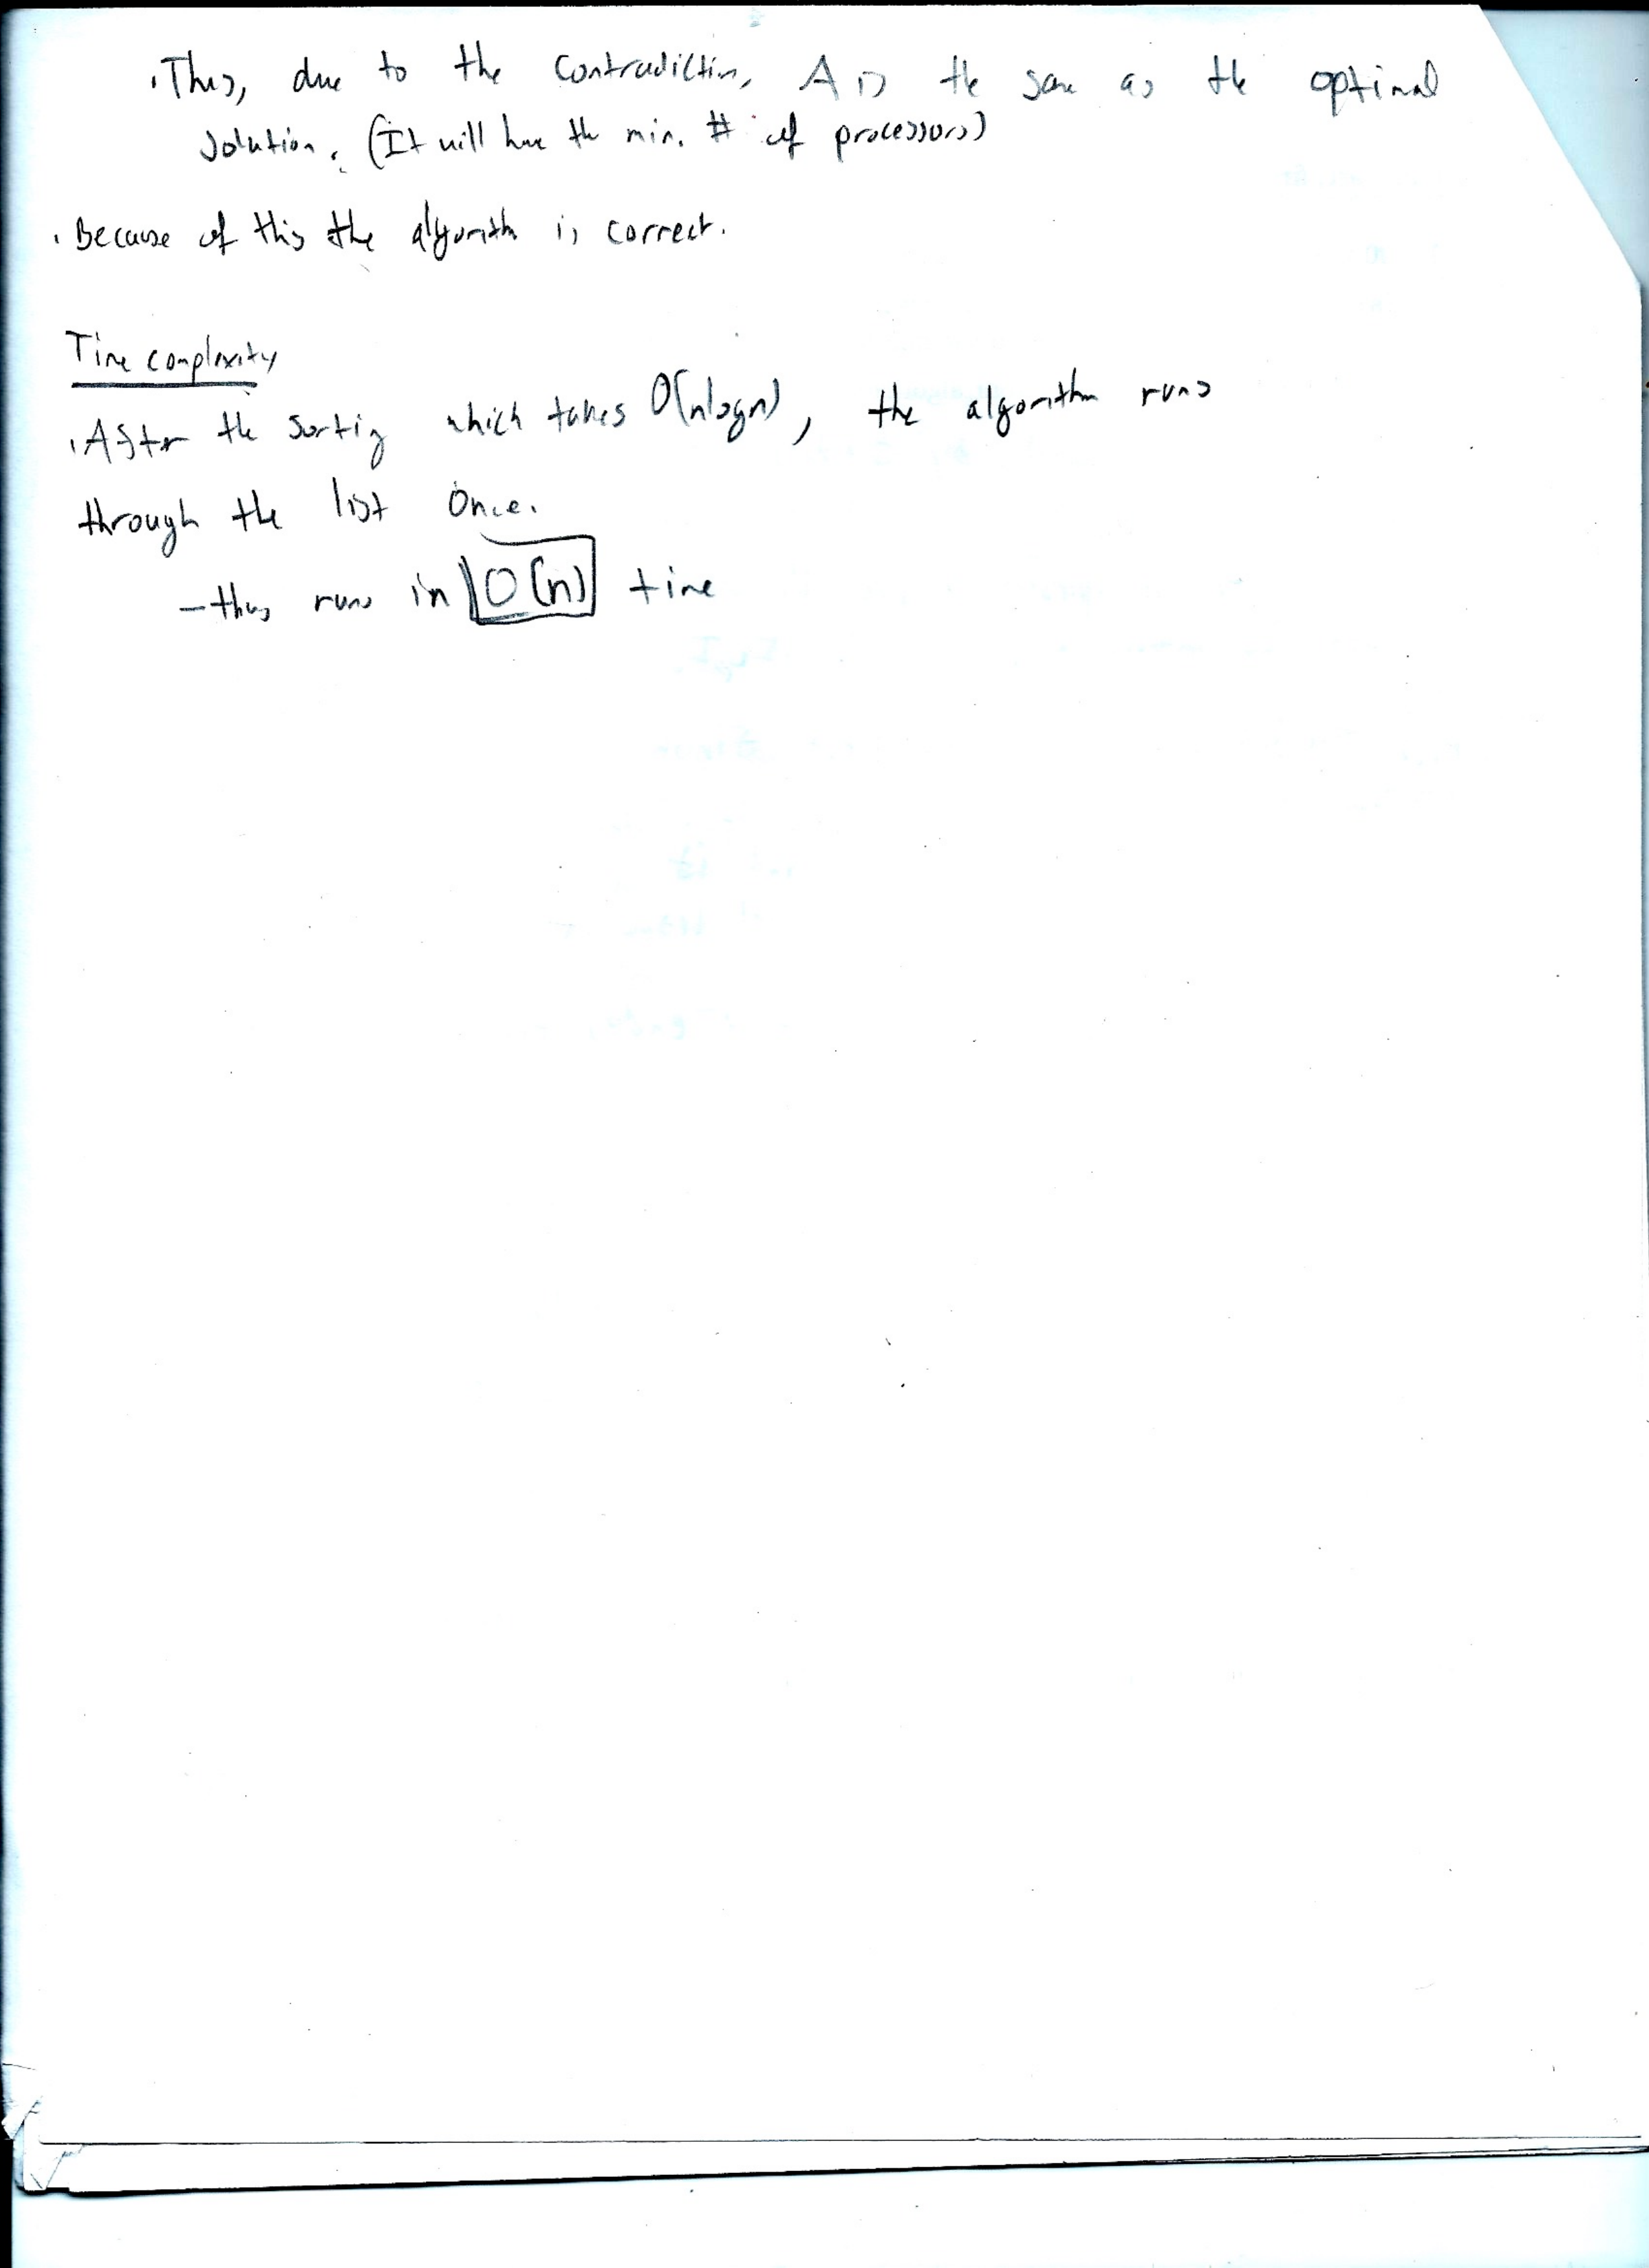 ·Thus, due to the contradiction, A is the same as the optimal
solution. (It will have the min. # of processors)
·Because of this the algorithm is correct.
Time complexity
·After the sorting which takes O(nlogn), the algorithm runs
through the list once.
-thus runs in O(n) time